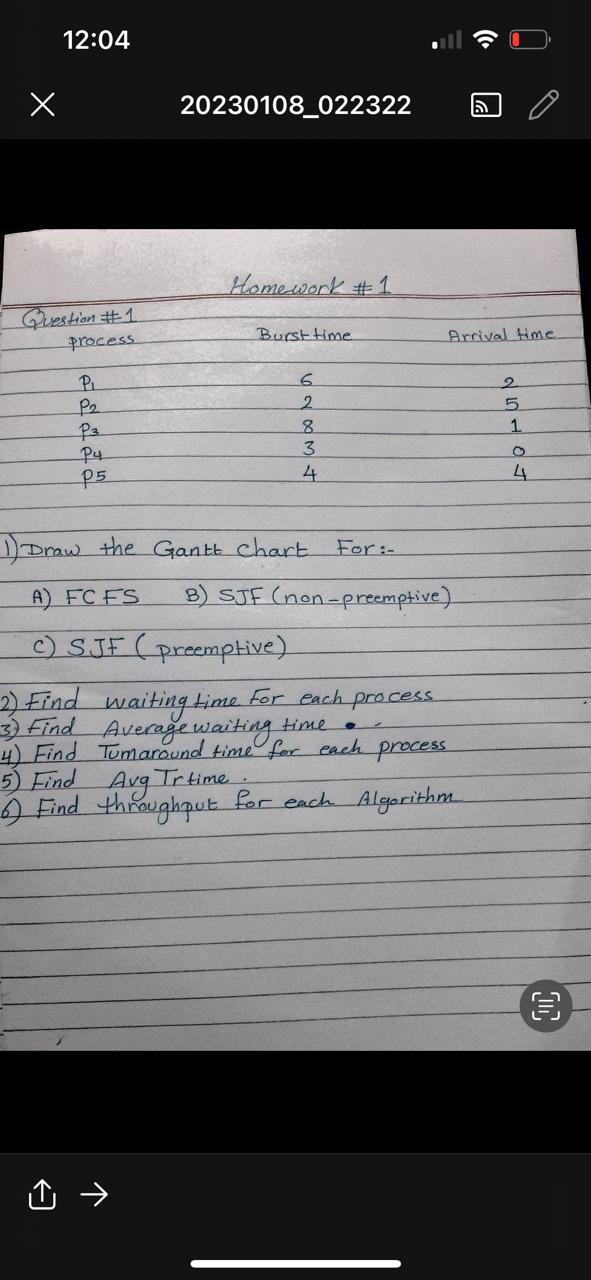 12:04
20230108_022322
Homework #1
Question #1
process Burst time Arrival time
P1 6 2
P2 2 5
P3 8 1
P4 3 0
P5 4 4
1) Draw the Gantt chart For:-
A) FCFS B) SJF (non-preemptive)
C) SJF ( preemptive)
2) Find waiting time For each process
3) Find Average waiting time
4) Find Turnaround time for each process
5) Find Avg Tr time.
6) Find throughput for each Algorithm